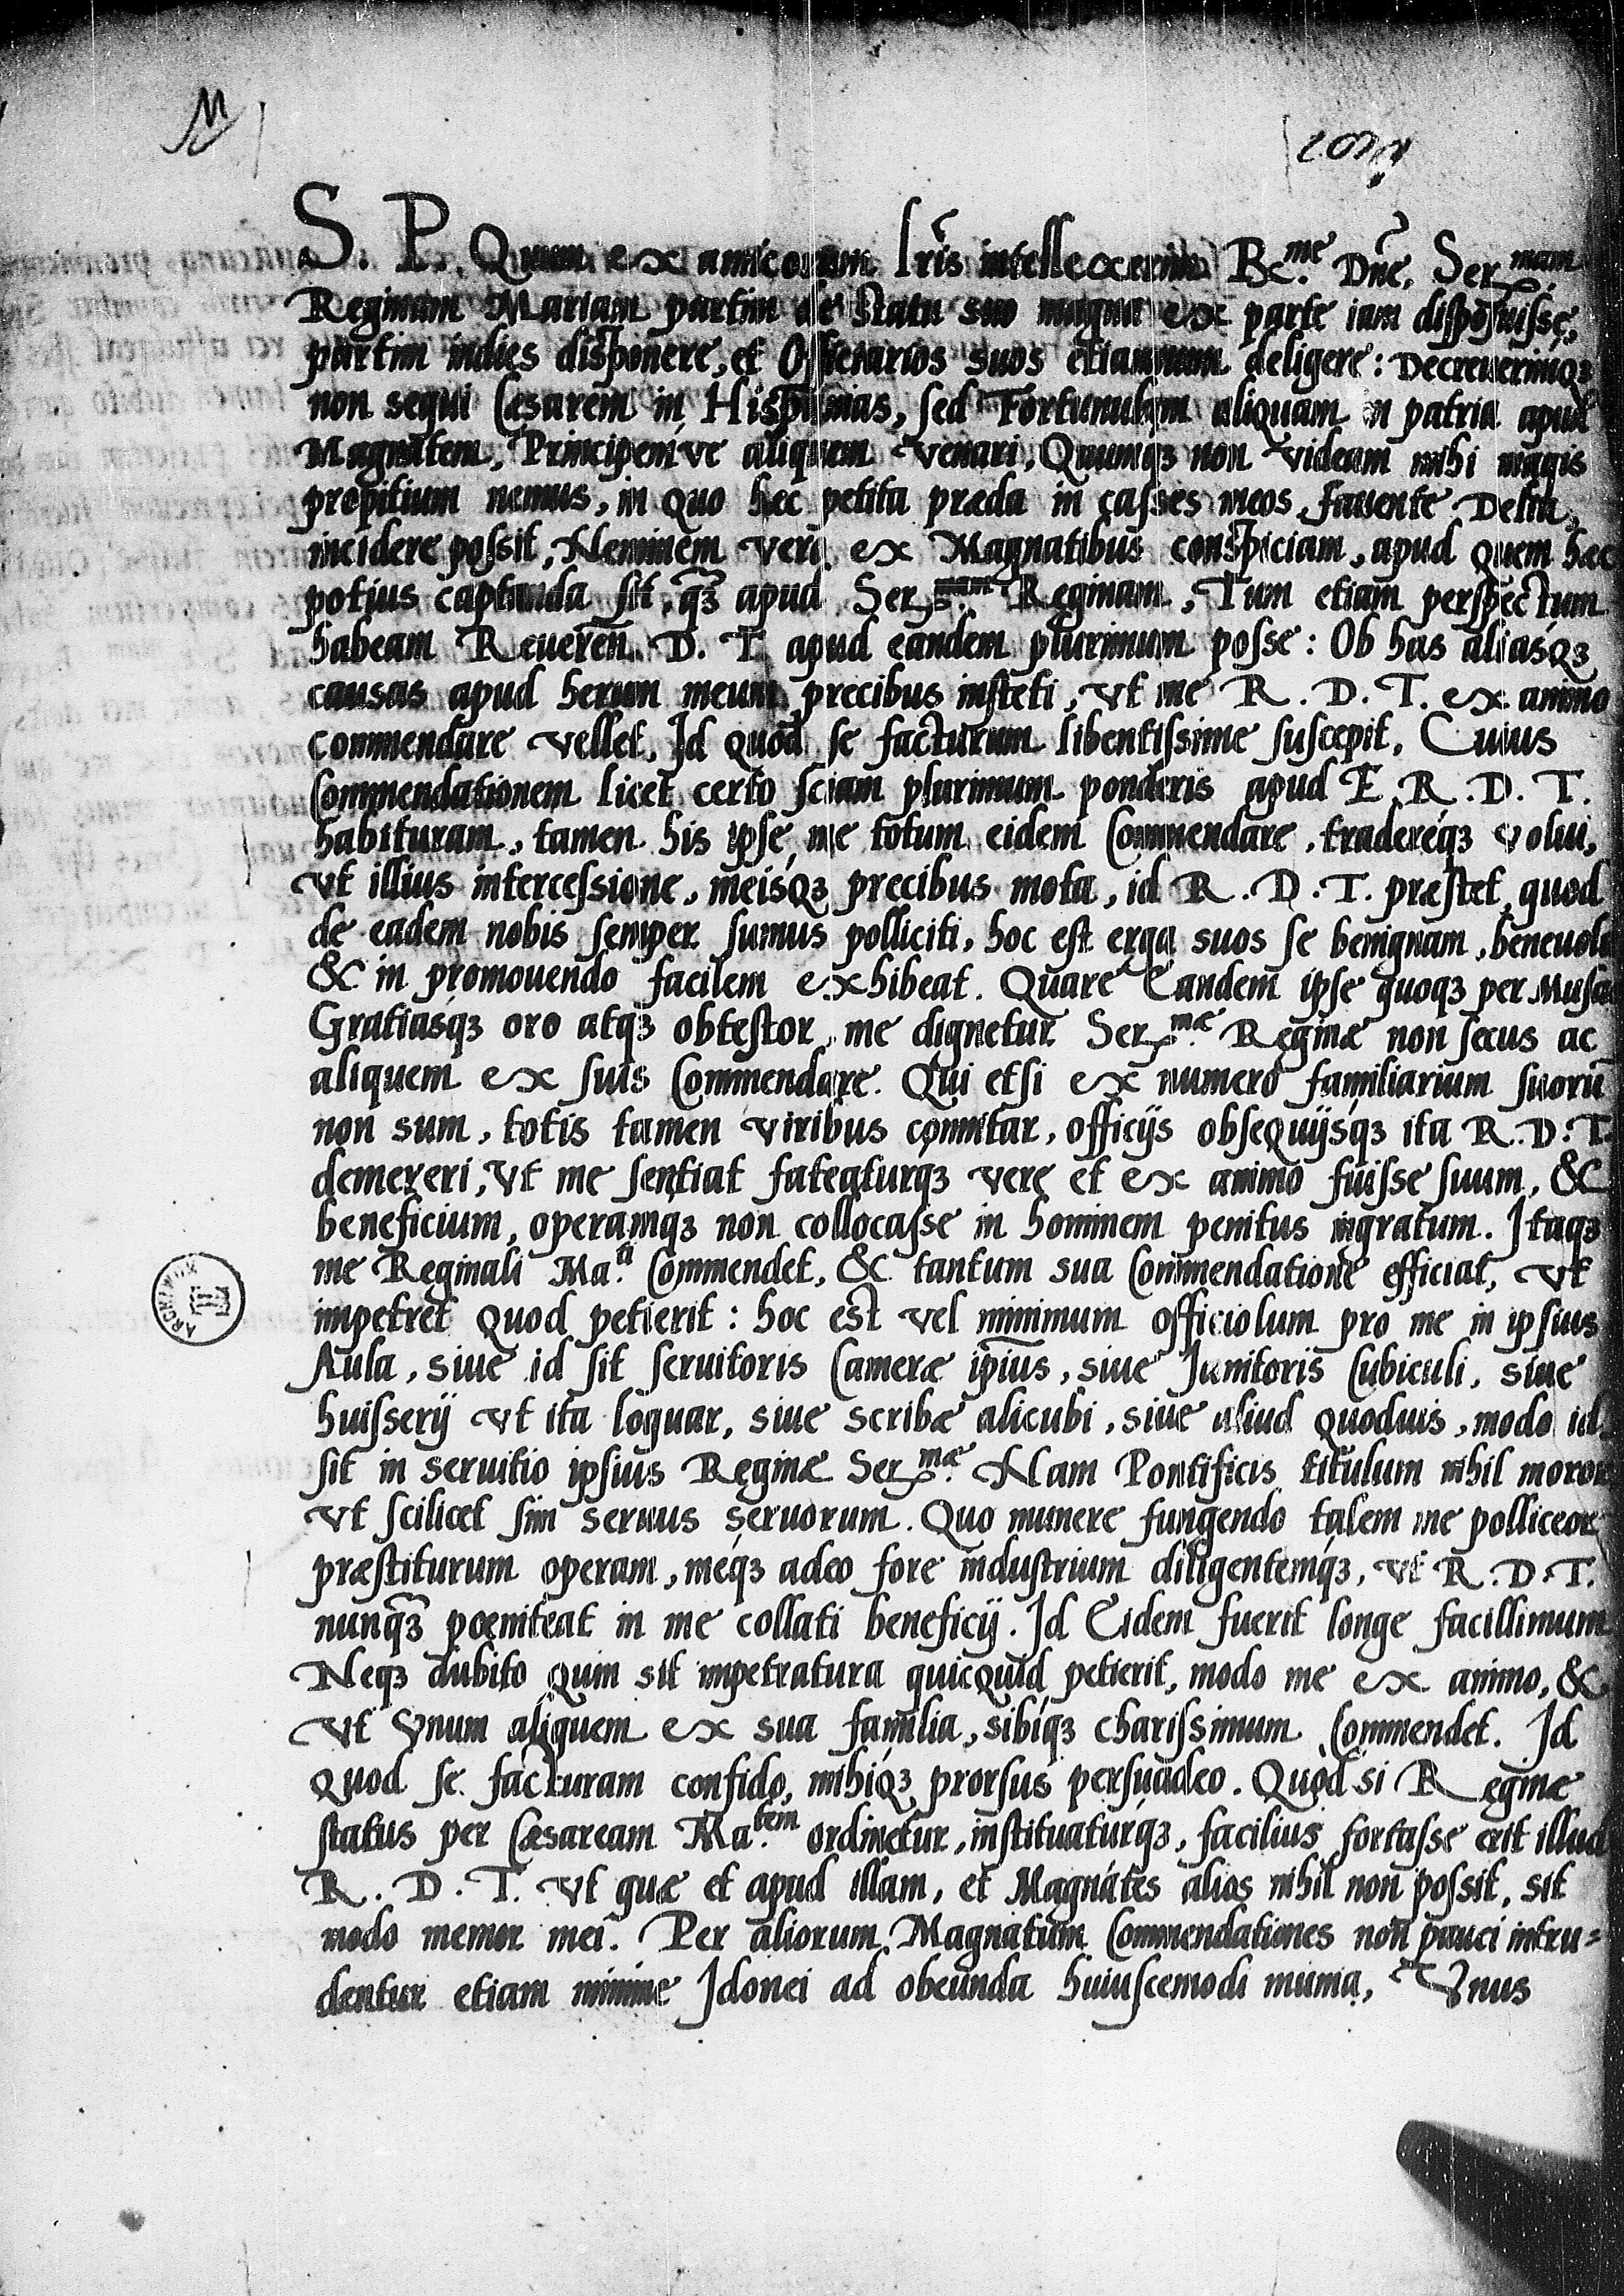 S. P. Quum ex amicorum lr̄is intellexerim R.me Dn̄e. Ser.mam
Reginam Mariam partim de statu suo magna ex parte iam disposuisse,
partim indies disponere, et Officiarios suos etiamnum deligere: Decreuerimq3
non sequi Cæsarem in Hispanias, sed Fortunulam aliquam in patria apud
Magnatem, Principemve aliquem venari, Quumq3 non videam mihi magis
propitium nemus, in quo hec petita præda in casses meos, fauente Delia,
incidere possit, Neminem vero ex Magnatibus conspiciam, apud quem hec
potius captanda sit, q̃3 apud Ser.mam Reginam, Tum etiam perspectum
habeam Reueren̄. D. T. apud eandem plurimum posse: Ob has aliasq3
causas apud herum meum precibus insteti, vt me R. D. T. ex animo
commendare vellet. Id quod se facturum libentissime suscepit. Cuius
Commendationem licet certo sciam plurimum ponderis apud E. R. D. T.
habituram, tamen his ipse me totum eidem Commendare, traderéq3 volui,
vt illius intercessione, meisq́3 precibus mota, id R. D. T. præstet, quod
de eadem nobis semper sumus polliciti, hoc est erga suos se benignam, beneuola
& in promouendo facilem exhibeat. Quare Eandem ipse quoq3 per Musas
Gratiasq́3 oro atq3 obtestor, me dignetur Ser.mæ Reginæ non secus ac
aliquem ex suis Commendare. Qui etsi ex numero familiarium suorū
non sum, totis tamen viribus connitar, officijs obsequijsq́3 ita R. D. T.
demereri, vt me sentiat fateaturq3 vere et ex animo fuisse suum, &
beneficium, operamq3 non collocasse in hominem penitus ingratum. Itaq3
me Reginali Ma.ti Commendet, & tantum sua Commendatione efficiat, vt
impetret quod petierit: hoc est vel minimum officiolum pro me in ipsius
Aula, siue id sit seruitoris Cameræ ip̄ius, siue Janitoris Cubiculi, siue
huisserij vt ita loquar, siue scribæ alicubi, siue aliud quoduis, modo id
sit in seruitio ipsius Reginæ Ser.mæ Nam Pontificis titulum nihil moror
vt scilicet sim seruus seruorum. Quo munere fungendo talem me polliceor
præstiturum operam, meq́3 adeo fore industrium diligentemq́3, vt R. D. T.
nunq̃3 poeniteat in me collati beneficij. Id Eidem fuerit longe facillimum
Neq3 dubito quin sit impetratura quicquid petierit, modo me ex animo, &
vt vnum aliquem ex sua familia, sibiq́3 charissimum Commendet. Id
quod se facturam confido, mihiq3 prorsus persuadeo. Quod si Reginæ
status per Cæsaream Ma.tem ordinetur, instituaturq́3, facilius fortasse erit illud
R. D. T. vt quæ et apud illam, et Magnátes alios nihil non possit, sit
modo memor mei. Per aliorum Magnatum Commendationes non pauci intru=
dentur etiam minime Idonei ad obeunda huiuscemodi munia, Vnus
ARCHIWUM